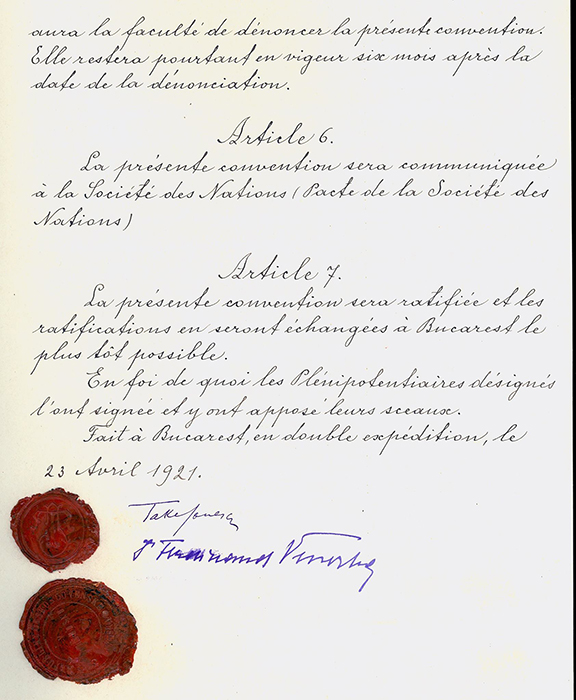 aura la faculté de dénoncer la présente convention.
Elle restera pourtant en vigueur six mois après la
date de la dénonciation.
Article 6.
La présente convention sera communiquée
à la Société des Nations (Pacte de la Société des
Nations)
Article 7.
La présente convention sera ratifiée et les
ratifications en seront échangées à Bucarest le
plus tôt possible.
En foi de quoi les Plénipotentiaires désignés
l'ont signée et y ont apposé leurs sceaux.
Fait à Bucarest, en double expédition, le
23 Avril 1921.
Take Ionescu
Ferdinand